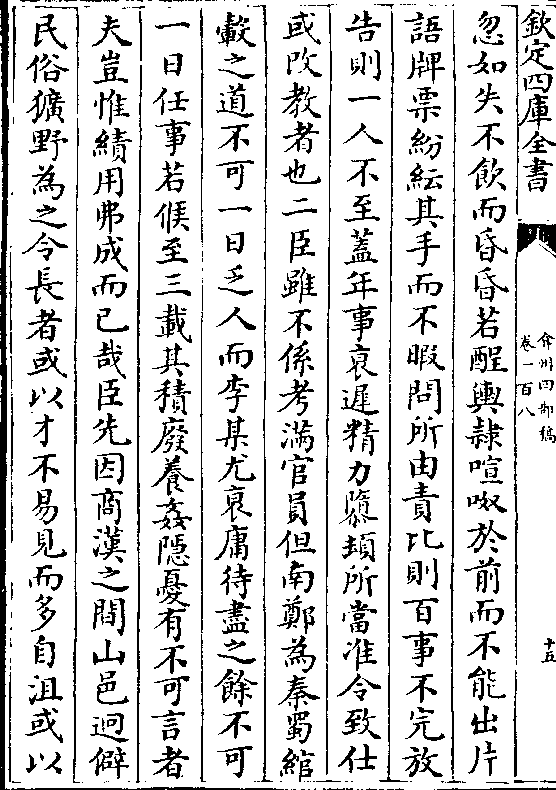 欽定四庫全書
弇州四部稿
卷一百八
十五
忽如失不飲而昏昏若醒輿隷喧呶於前而不能出片
語牌票紛紜其手而不暇問所由責比則百事不完放
告則一人不至蓋年事衰遲精力隳頽所當准令致仕
或改教者也二臣雖不係考滿官員但南鄭為秦蜀綰
轂之道不可一日乏人而李某尤衰庸待盡之餘不可
一日任事若候至三載其積廢養姦隱憂有不可言者
夫豈惟績用弗成而已哉臣先因商漢之間山邑迥僻
民俗獷野為之令長者或以才不易見而多自沮或以